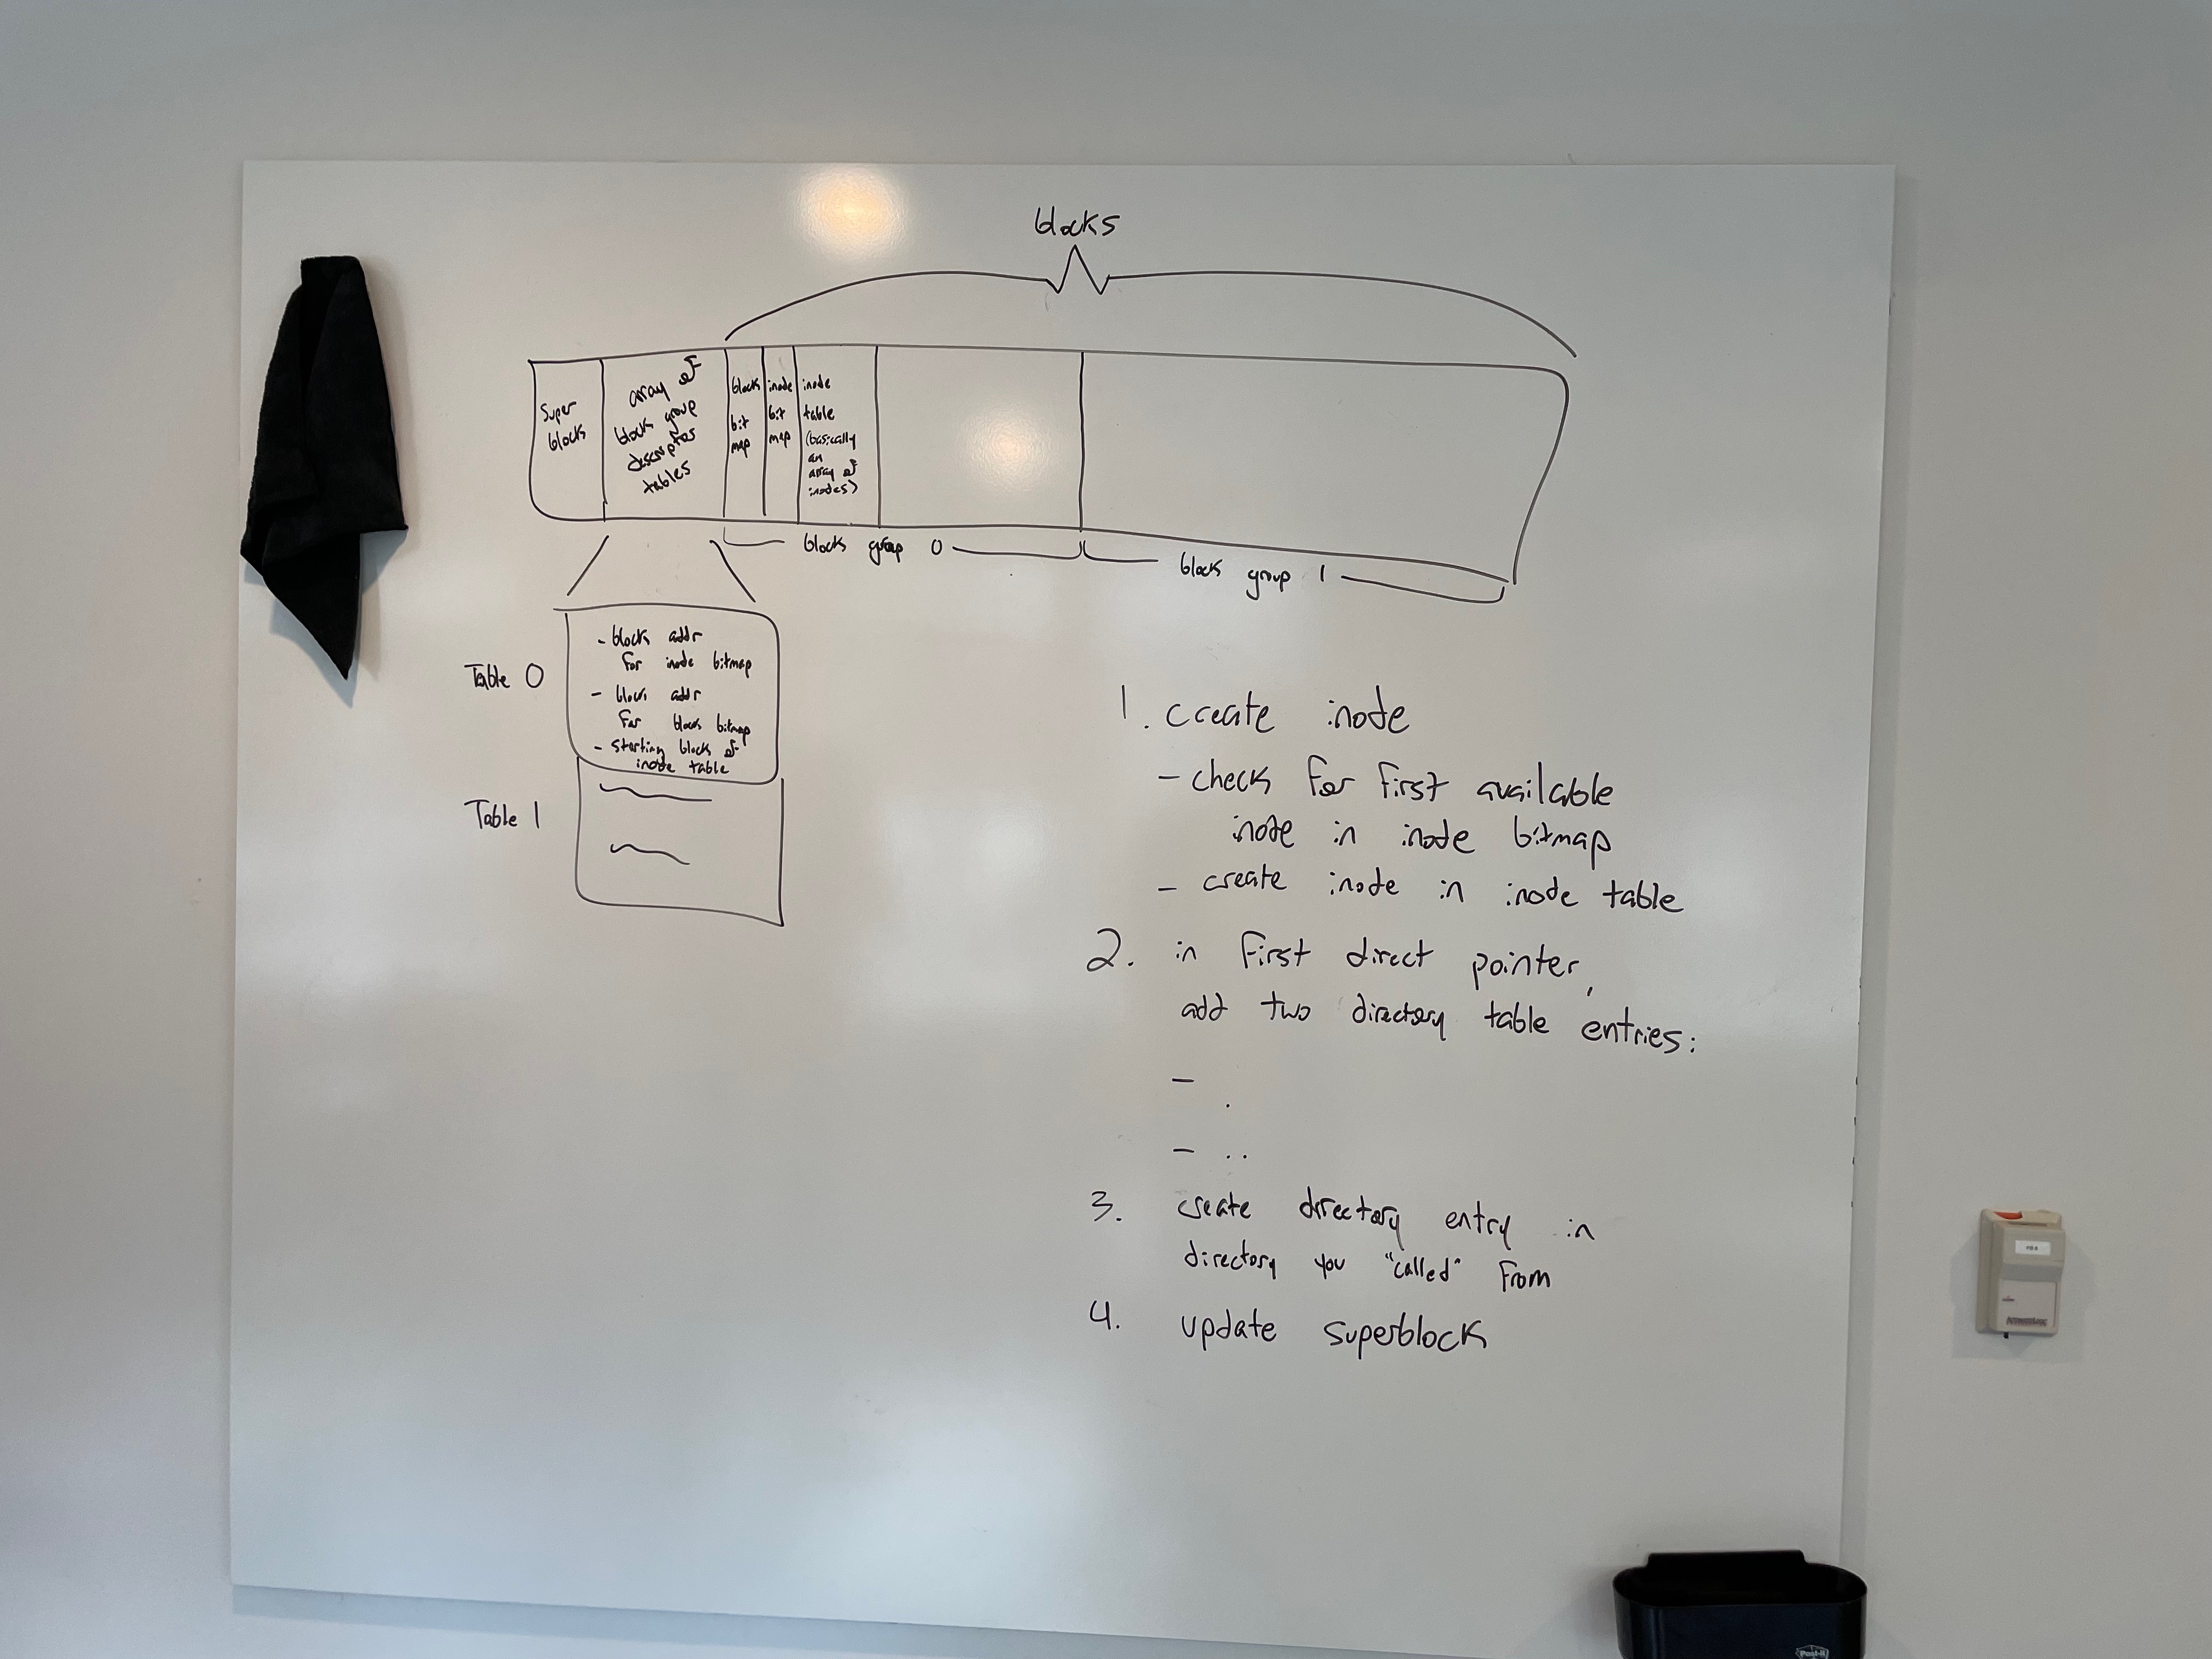 blocks
Super
block
array of
block group
descriptor
tables
block
bit
map
inode
bit
map
inode
table
(basically
an
array of
inodes)
block group 0
block group 1
Table 0
- block addr
for inode bitmap
- block addr
for block bitmap
- starting block of
inode table
Table 1
1. create inode
- check for first available
inode in inode bitmap
- create inode in inode table
2. in first direct pointer,
add two directory table entries:
- .
- ..
3. create directory entry in
directory you "called" from
4. update superblock
Post-it